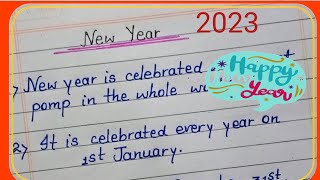 New Year 2023
1) New year is celebrated
pomp in the whole
Happy
Year
2) It is celebrated every year on
1st January.
31st